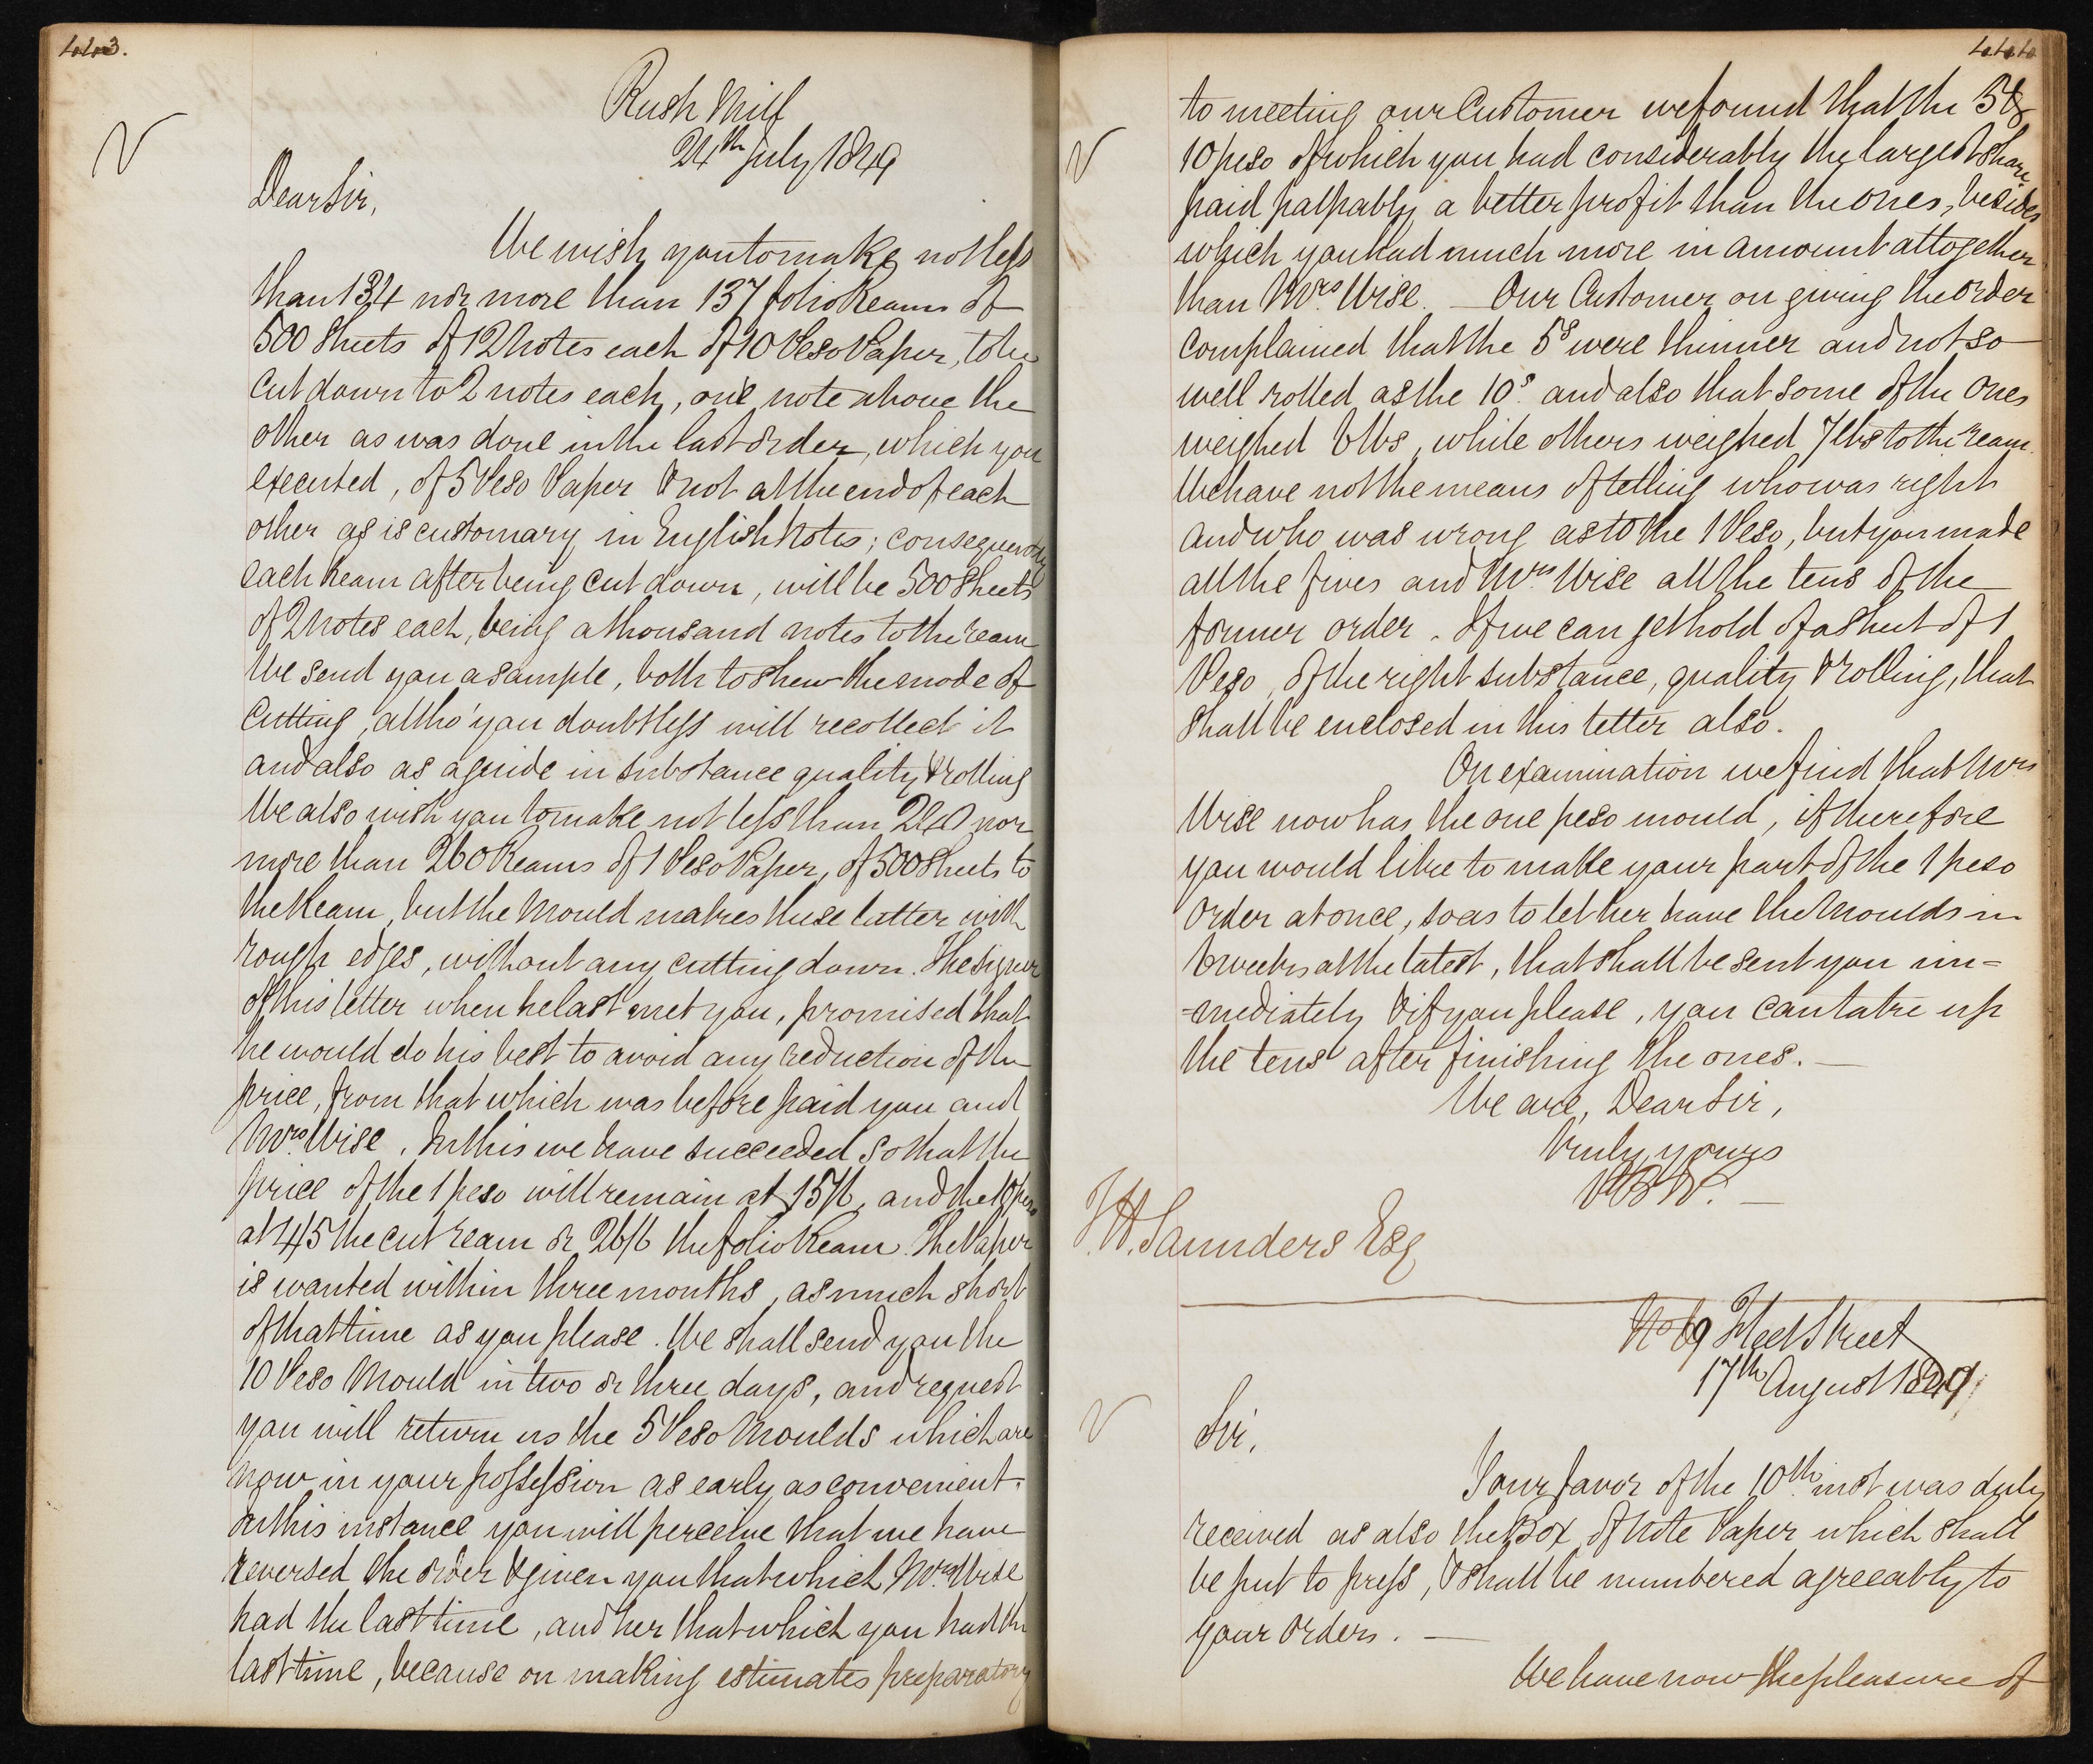 443.
Rush Mill
24th July 1849
Dear Sir,
We wish you to make not less
than 134 nor more than 137 folio Reams of
500 Sheets of 12 Notes each of 10 Peso Paper, to be
cut down to 2 notes each, one note above the
other as was done in the last order, which you
executed, of 5 Peso Paper & not at the end of each
other as is customary in English Notes; consequently
each Ream after being cut down, will be 500 Sheets
of 2 Notes each, being a thousand notes to the ream
We send you a sample, both to shew the mode of
Cutting, altho' you doubtless will recollect it
and also as a guide in substance quality & rolling
We also wish you to make not less than 240 nor
more than 260 Reams of 1 Peso Paper, of 500 Sheets to
the Ream, but the Mould makes these latter with
rough edges, without any cutting down. The signer
of this letter when he last met you, promised that
he would do his best to avoid any reduction of the
price, from that which was before paid you and
Mrs. Wise. In this we have succeeded so that the
price of the 1 peso will remain at 15/6, and the 10 peso
at 4/5 the cut ream or 26/6 the folio Ream. The Paper
is wanted within three months, as much short
of that time as you please. We shall send you the
10 Peso Mould in two or three days, and request
you will return us the 5 Peso Moulds which are
now in your possession as early as convenient.
In this instance you will perceive that we have
reversed the order & given you that which Mrs. Wise
had the last time, and her that which you had the
last time, because on making estimates preparatory
444
to meeting our Customer we found that the 5 &
10 peso of which you had considerably the largest share,
paid palpably a better profit than the ones, besides
which you had much more in amount altogether
than Mrs. Wise. — Our Customer on giving the order
complained that the 5s were thinner and not so
well rolled as the 10s. and also that some of the Ones
weighed 6 lbs, while others weighed 7 lbs to the ream.
We have not the means of telling who was right
and who was wrong as to the 1 Peso, but you made
all the fives and Mrs. Wise all the tens of the
former order. If we can get hold of a sheet of 1
Peso, of the right substance, quality & rolling, that
shall be enclosed in this letter also.
On examination we find that Mrs
Wise now has the one peso mould, if therefore
you would like to make your part of the 1 peso
order at once, so as to let her have the Moulds in
6 weeks at the latest, that shall be sent you im=
=mediately & if you please, you can take up
the tens after finishing the ones. —
We are, Dear Sir,
Truly yours
PB & P. —
T. H. Saunders Esq
No 69 Fleet Street
17th August 1849
Sir,
Your favor of the 10th. inst was duly
received as also the Box of Note Paper which shall
be put to press, & shall be numbered agreeably to
your orders. —
We have now the pleasure of